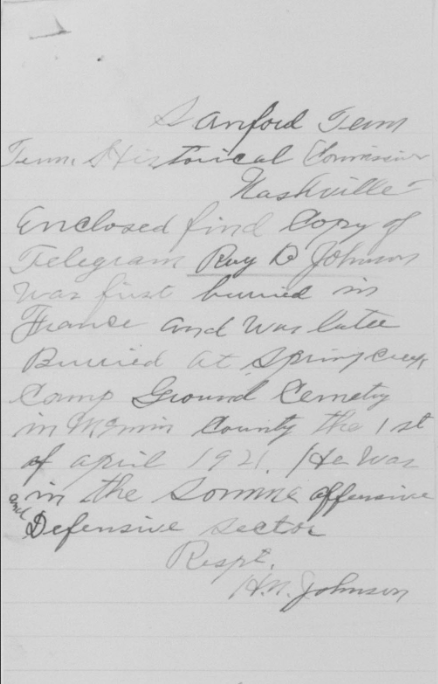 Sanford Tenn
Tenn. Historical Commission
Nashville
Enclosed find Copy of
Telegram Roy D Johnson
Was first burried in
France and Was later
Burried at Spring Creek
Camp Ground Cemetry
in McMinn County the 1st
of april 1921. He Was
in the Somme offensive
and Defensive sector
Respt.
H.N. Johnson